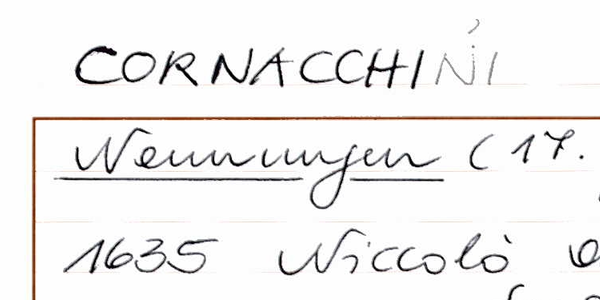 CORNACCHINI
Nennungen (17.
1635 Niccolò